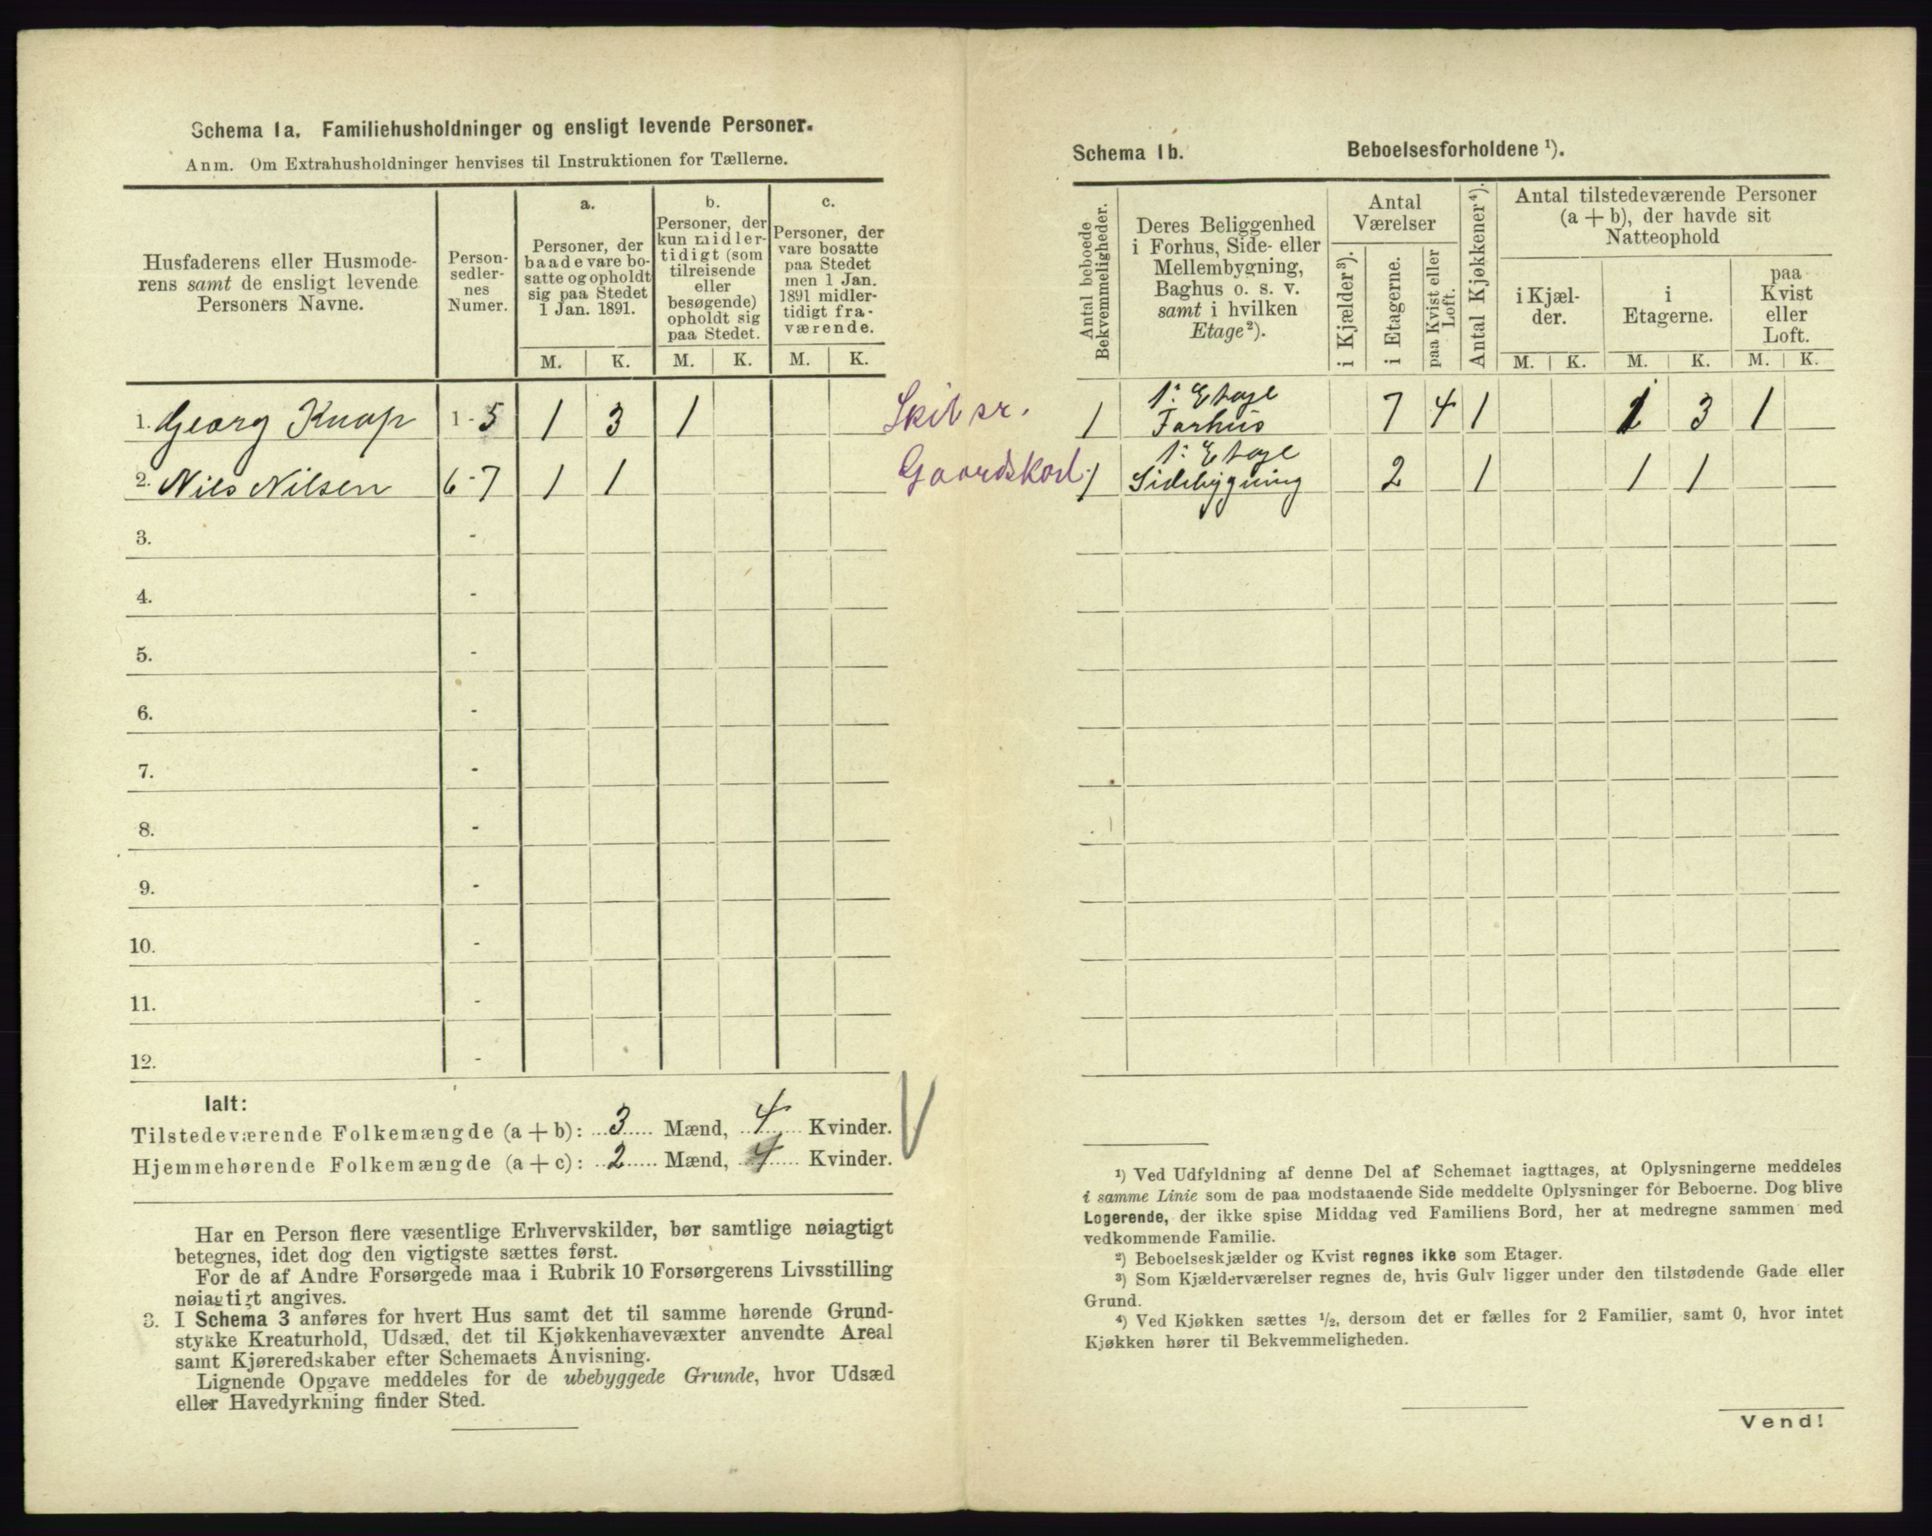 Schema 1a. Familiehusholdninger og ensligt levende Personer.
Anm. Om Extrahusholdninger henvises til Instruktionen for Tællerne.
Husfaderens eller Husmode-
rens samt de ensligt levende
Personers Navne.
Person-
sedler-
nes
Numer.
a.
Personer, der
baade vare bo-
satte og opholdt
sig paa Stedet
1 Jan. 1891.
b.
Personer, der
kun midler-
tidigt (som
tilreisende
eller
besøgende)
opholdt sig
paa Stedet.
c.
Personer, der
vare bosatte
paa Stedet
men 1 Jan.
1891 midler-
tidigt fra-
værende.
M. K. M. K. M. K.
1. Georg Knap 1-5 1 3 1
2. Nils Nilsen 6-7 1 1
3. -
4. -
5. -
6. -
7. -
8. -
9. -
10. -
11. -
12. -
Ialt:
Tilstedeværende Folkemængde (a + b): 3 Mænd, 4 Kvinder.
Hjemmehørende Folkemængde (a + c): 2 Mænd, 4 Kvinder.
Har en Person flere væsentlige Erhvervskilder, bør samtlige nøiagtigt
betegnes, idet dog den vigtigste sættes først.
For de af Andre Forsørgede maa i Rubrik 10 Forsørgerens Livsstilling
nøiagtigt angives.
3. I Schema 3 anføres for hvert Hus samt det til samme hørende Grund-
stykke Kreaturhold, Udsæd, det til Kjøkkenhavevæxter anvendte Areal
samt Kjøreredskaber efter Schemaets Anvisning.
Lignende Opgave meddeles for de ubebyggede Grunde, hvor Udsæd
eller Havedyrkning finder Sted.
Schema 1b. Beboelsesforholdene ¹).
Antal beboede
Bekvemmeligheder.
Deres Beliggenhed
i Forhus, Side- eller
Mellembygning,
Baghus o. s. v.
samt i hvilken
Etage²).
Antal
Værelser
i Kjælder³).
i Etagerne.
paa Kvist eller
Loft.
Antal Kjøkkener⁴).
Antal tilstedeværende Personer
(a + b), der havde sit
Natteophold
i Kjæl-
der.
i
Etagerne.
paa
Kvist
eller
Loft.
M. K. M. K. M. K.
Skibsr. 1 1: Etage
Forhus 7 4 1 1 3 1
Gaardskarl 1 1: Etage
Sidebygning 2 1 1 1
¹) Ved Udfyldning af denne Del af Schemaet iagttages, at Oplysningerne meddeles
i samme Linie som de paa modstaaende Side meddelte Oplysninger for Beboerne. Dog blive
Logerende, der ikke spise Middag ved Familiens Bord, her at medregne sammen med
vedkommende Familie.
²) Beboelseskjælder og Kvist regnes ikke som Etager.
³) Som Kjælderværelser regnes de, hvis Gulv ligger under den tilstødende Gade eller
Grund.
⁴) Ved Kjøkken sættes ½, dersom det er fælles for 2 Familier, samt 0, hvor intet
Kjøkken hører til Bekvemmeligheden.
Vend!